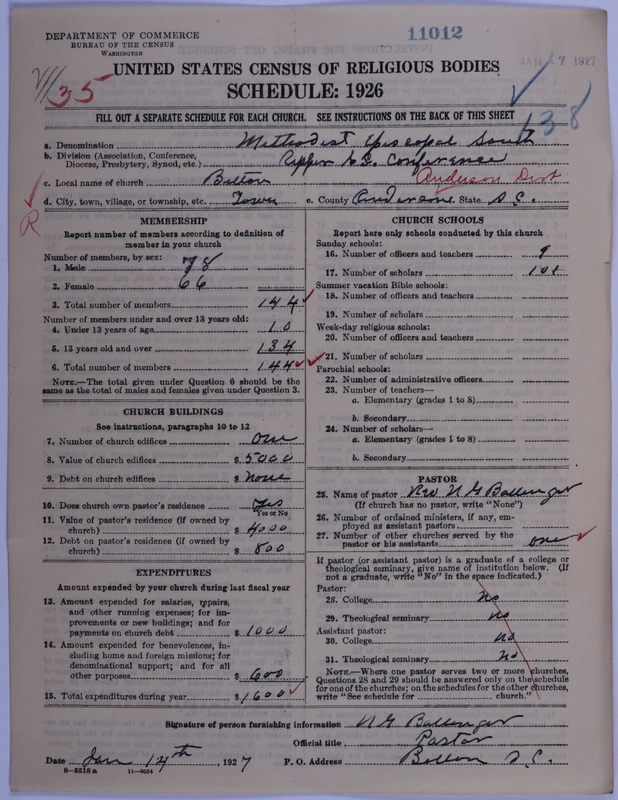 DEPARTMENT OF COMMERCE
BUREAU OF THE CENSUS
WASHINGTON
11012
JAN 17 1927
UNITED STATES CENSUS OF RELIGIOUS BODIES
SCHEDULE: 1926
35
138
FILL OUT A SEPARATE SCHEDULE FOR EACH CHURCH. SEE INSTRUCTIONS ON THE BACK OF THIS SHEET
a. Denomination Methodist Episcopal South
b. Division (Association, Conference, Diocese, Presbytery, Synod, etc.) Upper S.C. Conference
c. Local name of church Belton Anderson Dist
d. City, town, village, or township, etc. Town e. County Anderson State S.C.
R
MEMBERSHIP
Report number of members according to definition of member in your church
Number of members, by sex:
1. Male 78
2. Female 66
3. Total number of members 144
Number of members under and over 13 years old:
4. Under 13 years of age 10
5. 13 years old and over 134
6. Total number of members 144
NOTE.—The total given under Question 6 should be the same as the total of males and females given under Question 3.
CHURCH BUILDINGS
See instructions, paragraphs 10 to 12
7. Number of church edifices One
8. Value of church edifices $ 5000
9. Debt on church edifices $ None
10. Does church own pastor's residence Yes
Yes or No
11. Value of pastor's residence (if owned by church) $ 4000
12. Debt on pastor's residence (if owned by church) $ 800
EXPENDITURES
Amount expended by your church during last fiscal year
13. Amount expended for salaries, repairs, and other running expenses; for improvements or new buildings; and for payments on church debt $ 1000
14. Amount expended for benevolences, including home and foreign missions; for denominational support; and for all other purposes $ 600
15. Total expenditures during year $ 1600
CHURCH SCHOOLS
Report here only schools conducted by this church
Sunday schools:
16. Number of officers and teachers 9
17. Number of scholars
Summer vacation Bible schools:
18. Number of officers and teachers
19. Number of scholars
Week-day religious schools:
20. Number of officers and teachers
21. Number of scholars
Parochial schools:
22. Number of administrative officers
23. Number of teachers—
a. Elementary (grades 1 to 8)
b. Secondary
24. Number of scholars—
a. Elementary (grades 1 to 8)
b. Secondary
PASTOR
25. Name of pastor Rev N G Ballenger
(If church has no pastor, write "None")
26. Number of ordained ministers, if any, employed as assistant pastors
27. Number of other churches served by the pastor or his assistants One
If pastor (or assistant pastor) is a graduate of a college or theological seminary, give name of institution below. (If not a graduate, write "No" in the space indicated.)
Pastor:
28. College No
29. Theological seminary No
Assistant pastor:
30. College No
31. Theological seminary No
NOTE.—Where one pastor serves two or more churches, Questions 28 and 29 should be answered only on the schedule for one of the churches; on the schedules for the other churches, write "See schedule for church."
Signature of person furnishing information N G Ballenger
Official title Pastor
Date Jan 14th, 1927 P. O. Address Belton S.C.
8—5313a 11—9054